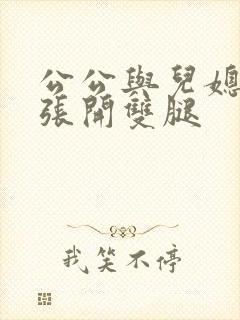 公公與兒媳
張開雙腿
我笑不停